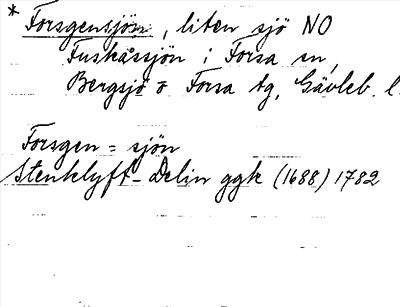 * Forsgensjön, liten sjö NO
Fuskåssjön i Forsa sn,
Bergsjö o Forsa tg, Gävleb. l.
Forsgen = sjön
Stenklyft - Delin ggk (1688) 1782